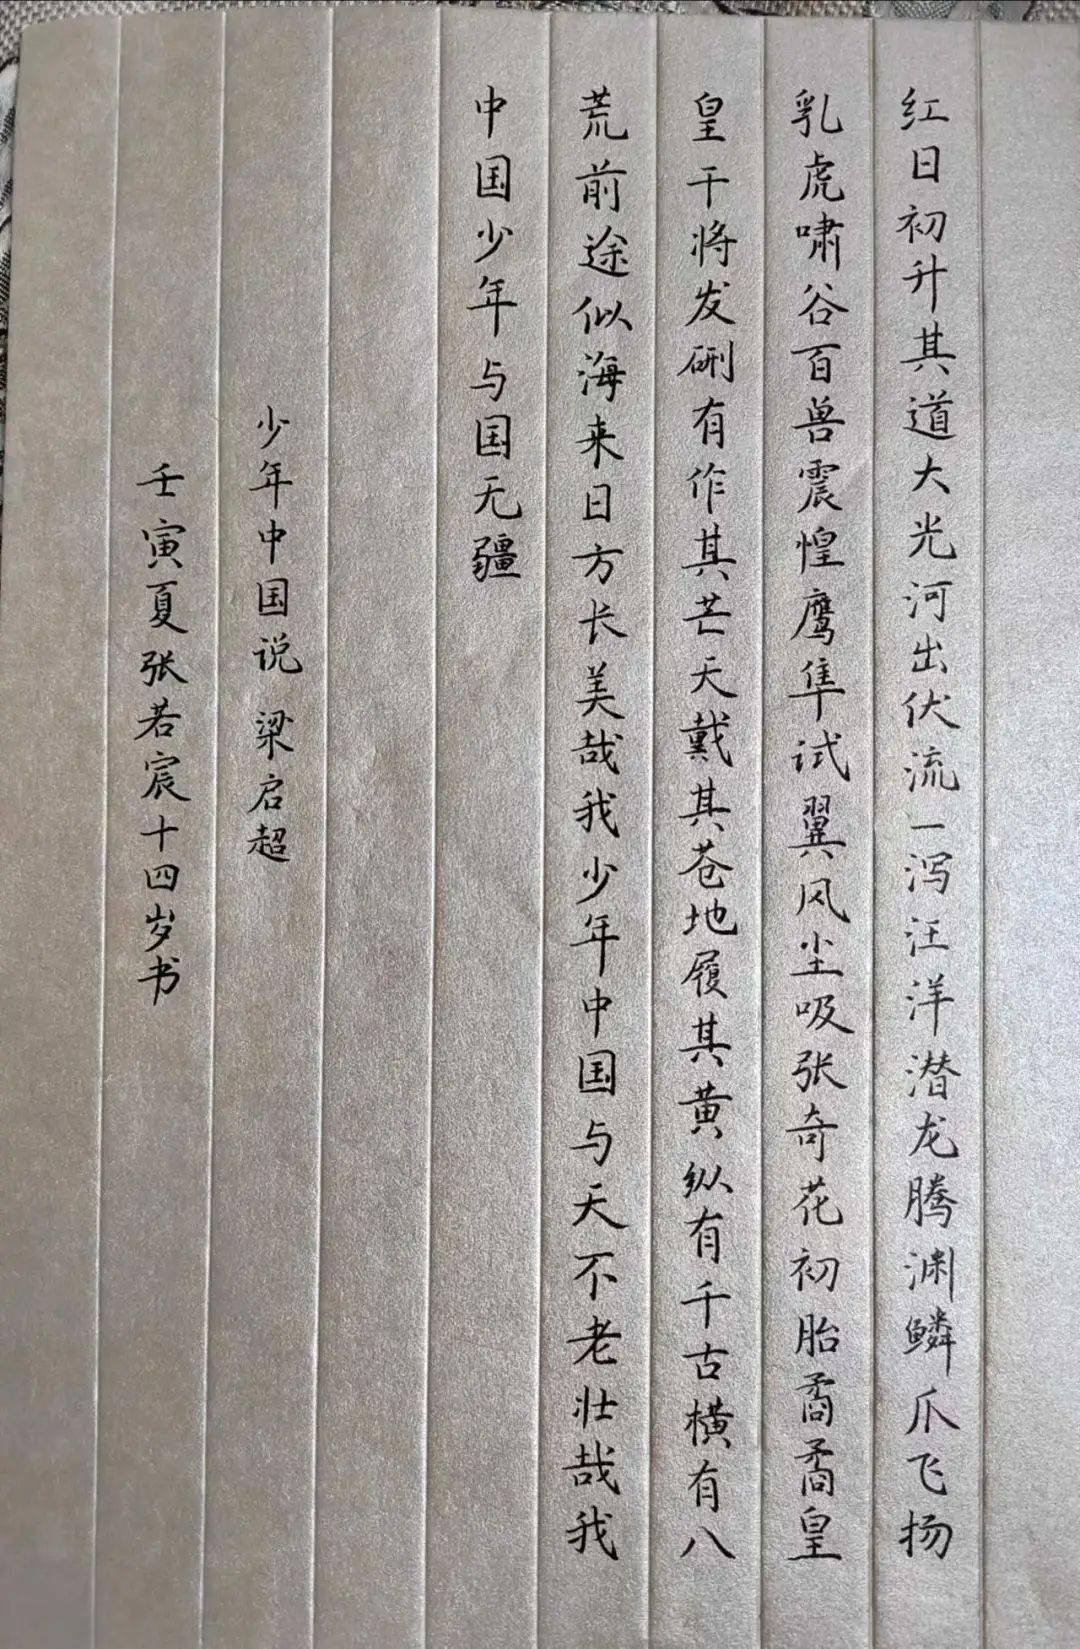 红日初升其道大光河出伏流一泻汪洋潜龙腾渊鳞爪飞扬
乳虎啸谷百兽震惶鹰隼试翼风尘吸张奇花初胎矞矞皇
皇干将发硎有作其芒天戴其苍地履其黄纵有千古横有八
荒前途似海来日方长美哉我少年中国与天不老壮哉我
中国少年与国无疆
少年中国说 梁启超
壬寅夏张若宸十四岁书